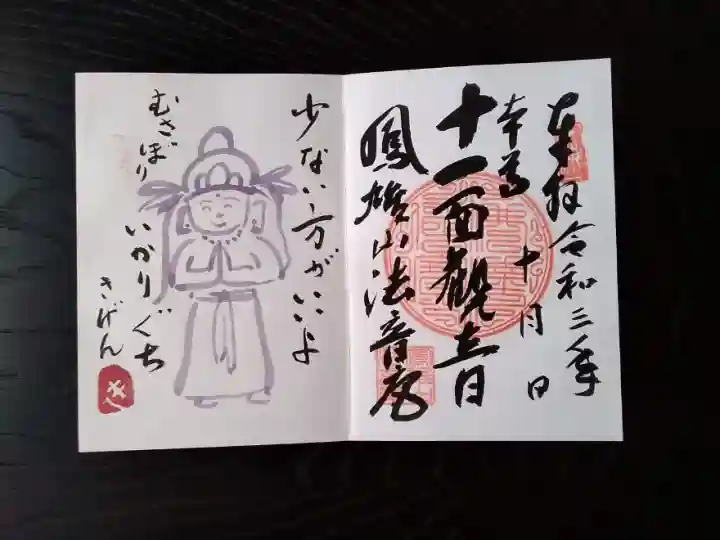 奉拝 令和三年
十月 日
本尊
十一面観音
鳳雄山法音房
少ない方がいいよ
むさぼり
いかり
ぐち
きげん